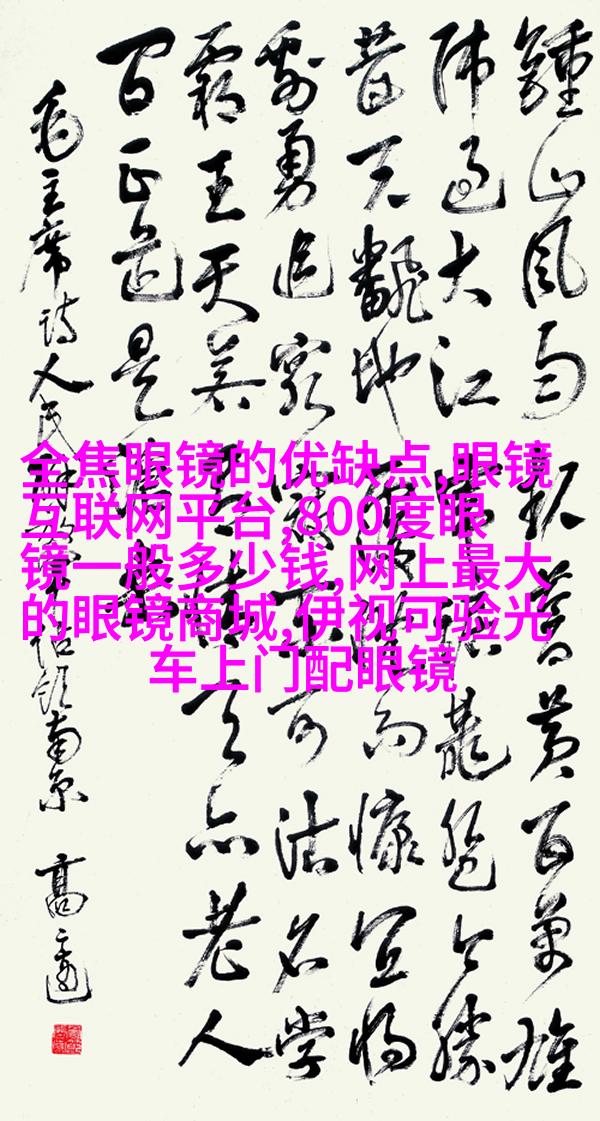 鍾山风雨起苍黄百万雄
师过大江虎踞龍盘今勝
昔天翻地覆慨而慷宜将
剩勇追穷寇不可沽名学
霸王天若有情天亦老人
间正道是沧桑
毛主席诗人民解放军占领南京
全焦眼镜的优缺点,眼镜
互联网平台,800度眼
镜一般多少钱,网上最大
的眼镜商城,伊视可验光
车上门配眼镜